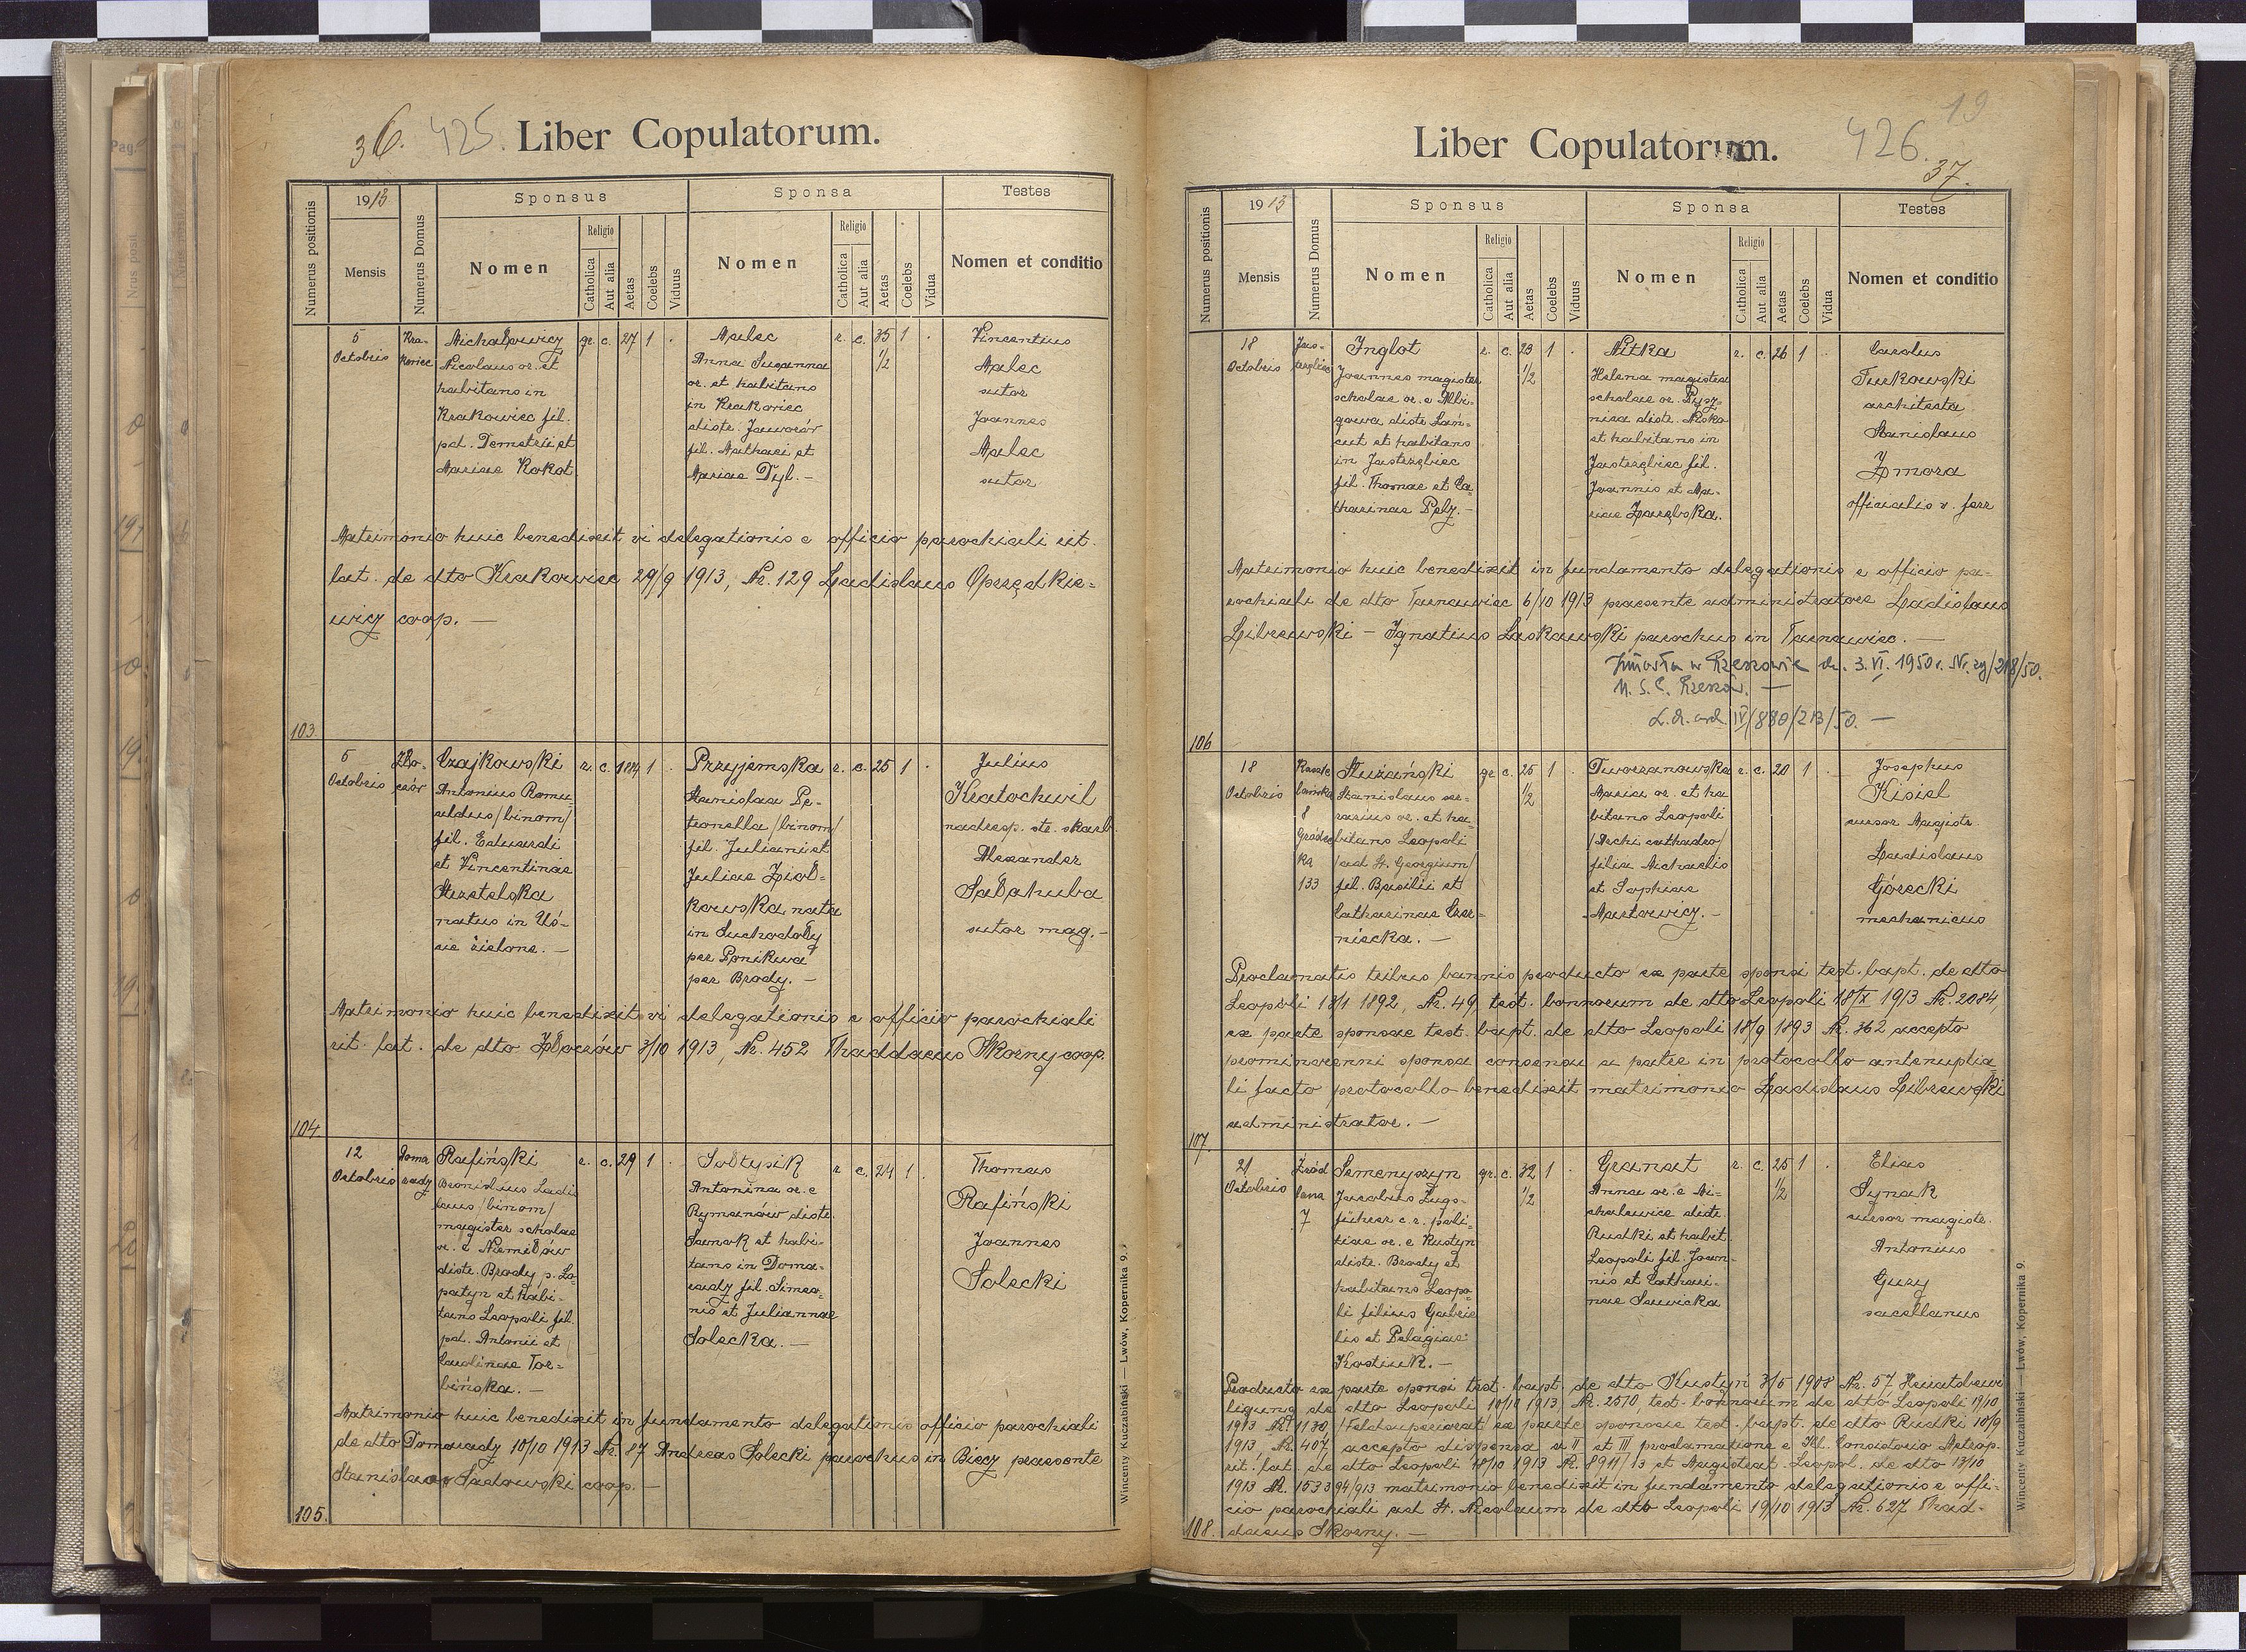 36. 425. Liber Copulatorum.
Numerus positionis
1913
Mensis
Numerus Domus
Sponsus
Nomen
Religio
Catholica
Aut alia
Aetas
Coelebs
Viduus
Sponsa
Nomen
Religio
Catholica
Aut alia
Aetas
Coelebs
Vidua
Testes
Nomen et conditio
103.
5
Octobris
Kra-
kowiec
Michałowicz
Nicolaus or. et
habitans in
Krakowiec fil.
pd. Demetrii et
Mariae Kokot
gr. c. 27 1 .
Malec
Anna Susanna
or. et habitans
in Krakowiec
distr. Jaworów
fil. Mathaei et
Mariae Dyl. —
r. c. 35 1 .
1/2
Vincentius
Malec
sutor
Joannes
Malec
sutor
Matrimonio huic benedixit vi delegationis e officio parochiali rit.
lat. de dto Krakowiec 29/9 1913, Nr. 129 Ladislaus Oprządkie-
wicz coop. —
104.
5
Octobris
Zło-
czów
Czajkowski
Antonius Romu-
aldus /binom/
fil. Eduardi
et Vincentinae
Strzetelska
natus in Uś-
cie zielone. —
r. c. 1884 1 .
Przyjemska
Stanislaa Pe-
tronella /binom/
fil. Juliani et
Juliae Ziół-
kowska nata
in Suchodoły
per Ponikwa
per Brody. —
r. c. 25 1 .
Julius
Kratochwil
nadresp. str. skarb.
Alexander
Sałahuba
sutor mag. —
Matrimonio huic benedixit vi delegationis e officio parochiali
rit. lat. de dto Złoczów 3/10 1913, Nr. 452 Thaddaeus Skorny coop.
105.
12
Octobris
Doma
radz
Rafiński
Bronislaus Ladis
laus /binom/
magister scholae
or. e Niemiłów
distr. Brody p. Ło-
patyn et habi-
tans Leopoli fil.
pd. Antonii et
Carolinae Tor-
bińska. —
r. c. 29 1 .
Sołtysik
Antonina or. e
Rymanów distr.
Sanok et habi-
tans in Doma-
radz fil. Simeo-
nis et Juliannae
Solecka. —
r. c. 24 1
Thomas
Rafiński
Joannes
Solecki
Matrimonio huic benedixit in fundamento delegationis officio parochiali
de dto Domaradz 10/10 1913 Nr. 87 Andreas Solecki parochus in Biecz praesente
Stanislao Sadowski coop. —
Wincenty Kuczabiński — Lwów, Kopernika 9.
Liber Copulatorum. 426. 19
37.
Numerus positionis
1913
Mensis
Numerus Domus
Sponsus
Nomen
Religio
Catholica
Aut alia
Aetas
Coelebs
Viduus
Sponsa
Nomen
Religio
Catholica
Aut alia
Aetas
Coelebs
Vidua
Testes
Nomen et conditio
106
18
Octobris
Jas-
trzębiec
Inglot
Joannes magister
scholae or. e Albi-
gowa distr. Łań-
cut et habitans
in Jastrzębiec
fil. Thomae et Ca-
tharinae Pelz. —
r. c. 23 1 .
1/2
Nitka
Helena magistra
scholae or. Pysz-
nica distr. Nisko
et habitans in
Jastrzębiec fil.
Joannis et Ma-
riae Zarębska.
r. c. 26 1 .
Carolus
Turkowski
architecta
Stanislaus
Zmora
officialis v. ferr
Matrimonio huic benedixit in fundamento delegationis e officio pa-
rochiali de dto Tarnawiec 6/10 1913 praesente administratore Ladislaus
Librewski — Ignatius Laskawski parochus in Tarnawiec. —
Zmarła w Rzeszowie dn. 3. VI. 1950 r. Nr. zg/218/50.
U. S. C. Rzeszów. —
L. d. ord. IV/880/213/50. —
107.
18
Octobris
8
Gródec
ka
133
Stużański
Stanislaus ser-
rarius or. et ha-
bitans Leopoli
/ad St. Georgium/
fil. Basilii et
Catharinae Czer-
niecka. —
gr. c. 25 1 .
1/2
Tworzanowska
Maria or. et ha
bitans Leopoli
/Archi cathadra/
filia Michaelis
et Sophiae
Markowicz. —
r. c. 20 1 .
Josephus
Kisiel
cursor Magistr.
Ladislaus
Górecki
mechanicus
Proclamatis tribus bannis producto ex parte sponsi test. bapt. de dto
Leopoli 13/1 1892, Nr. 49, test. bannorum de dto Leopoli 18/X 1913 Nr. 2084,
ex parte sponsae test. bapt. de dto Leopoli 18/9 1893 Nr. 362 accepto
prominorenni sponsa consensu a patre in protocollo antenuptia-
li facto protocollo benedixit matrimonio Ladislaus Librewski
administrator. —
108.
21
Octobris
Źród
lana
7
Semenyszyn
Jacobus Zugs-
führer c. r. poli-
tiae or. e Kustyn
distr. Brody et
habitans Leopo-
li filius Gabrie
lis et Pelagiae
Kostiuk. —
gr. c. 32 1 .
1/2
Granat
Anna or. e Mi-
chalewice distr.
Rudki et habit.
Leopoli fil. Joan-
nis et Cathari-
nae Sawicka
r. c. 25 1 .
1/2
Elias
Synak
cursor magistr.
Antonius
Guzy
sacellanus
Producto ex parte sponsi test. bapt. de dto Kustyn 3/5 1908 Nr. 57 Heiratsbewi
ligung de dto Leopoli 10/10 1913, Nr. 2570, test. bannorum de dto Leopoli 19/10
1913 Nr. 1130, /Feldsuperiorat/ ex parte sponsae test. bapt. de dto Rudki 10/9
1913, Nr. 407, accepto dispensa a II et III proclamatione e Ill. Consistorio Metrop.
rit. lat. de dto Leopoli 18/10 1913 Nr. 8911/13 et Magistrat. Leopol. de dto 13/10
1913 Nr. 153394/913 matrimonio benedixit in fundamento delegationis e offi-
cio parochiali ad St. Nicolaum de dto Leopoli 19/10 1913 Nr. 627 Thad-
daeus Skorny. —
Wincenty Kuczabiński — Lwów, Kopernika 9.